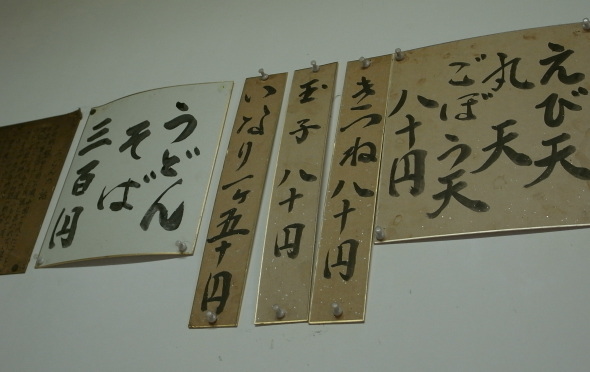 えび天
丸天
ごぼう天
八十円
きつね八十円
玉子八十円
いなり一ヶ五十円
うどん
そば
三百円